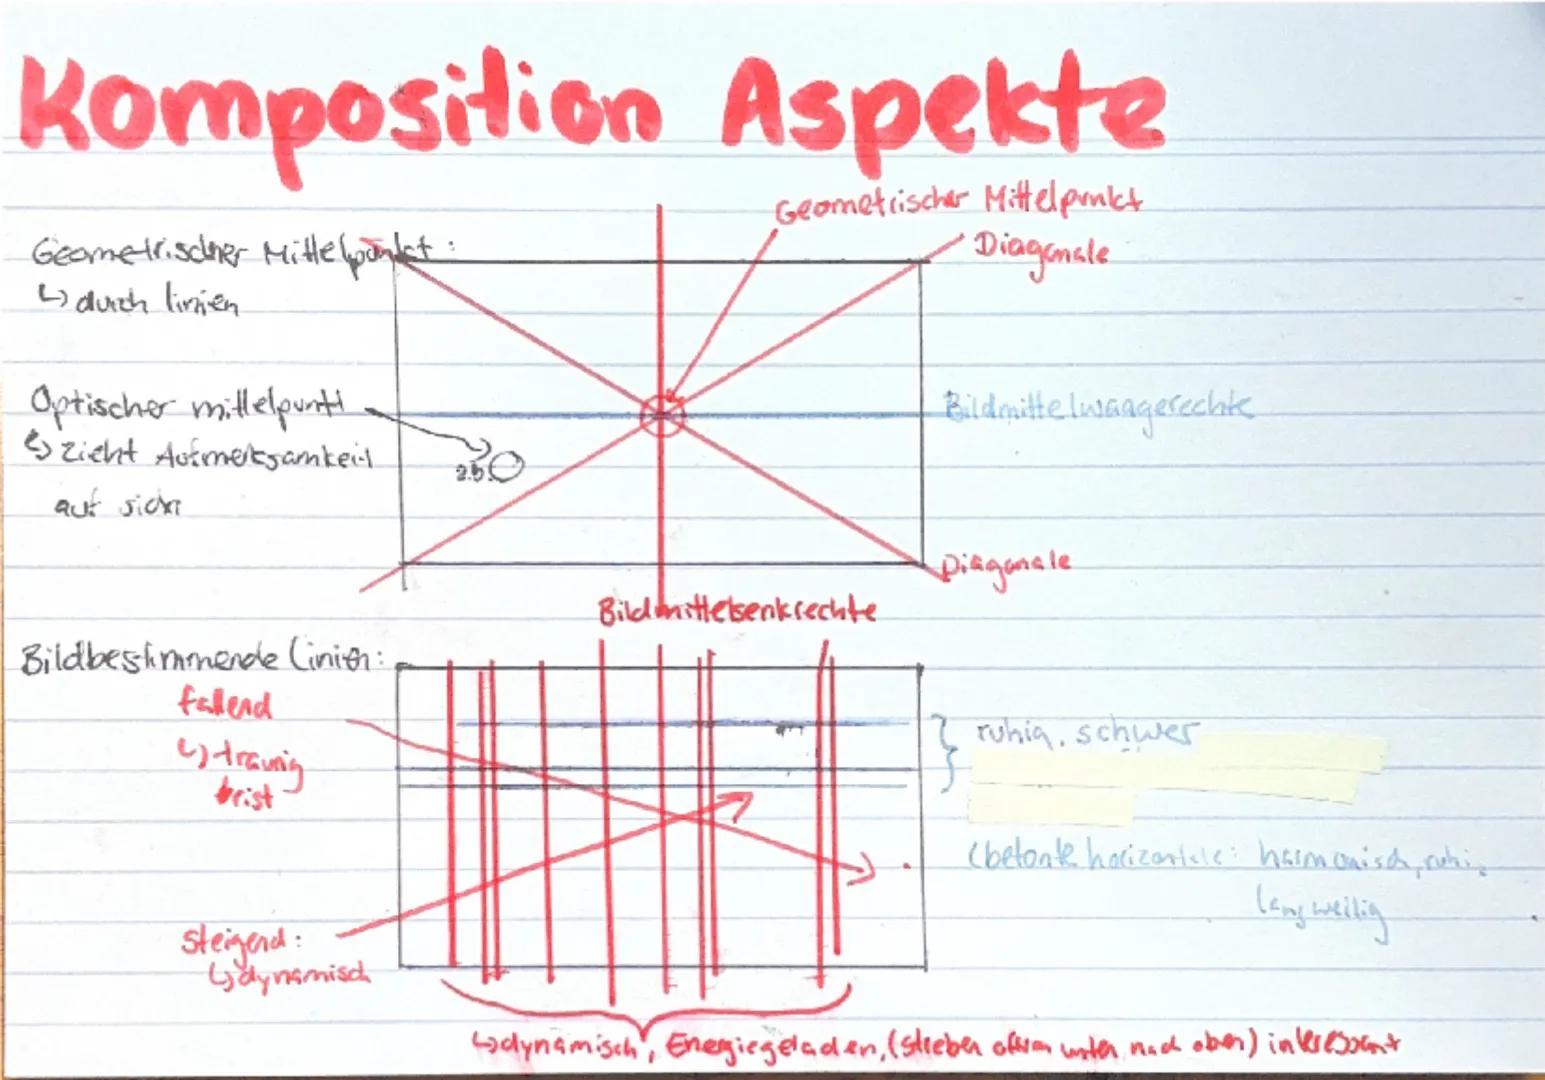 Komposition Aspekte
Geometrischer Mittelpunkt
Geometrischer Mittelpunkt:
Diagonale
↳ durch linien
Optischer mittelpunkt
Bildmittelwaagerechte
↳ zieht Aufmerksamkeit
z.B.
auf sich
Diagonale
Bildmittelsenkrechte
Bildbestimmende Linien:
fallend
ruhig, schwer
↳ traurig
trist
(betonte horizontale: harmonisch, ruhig
langweilig
steigend:
↳ dynamisch
↳ dynamisch, Energiegeladen, (streben unten nach oben) interessant